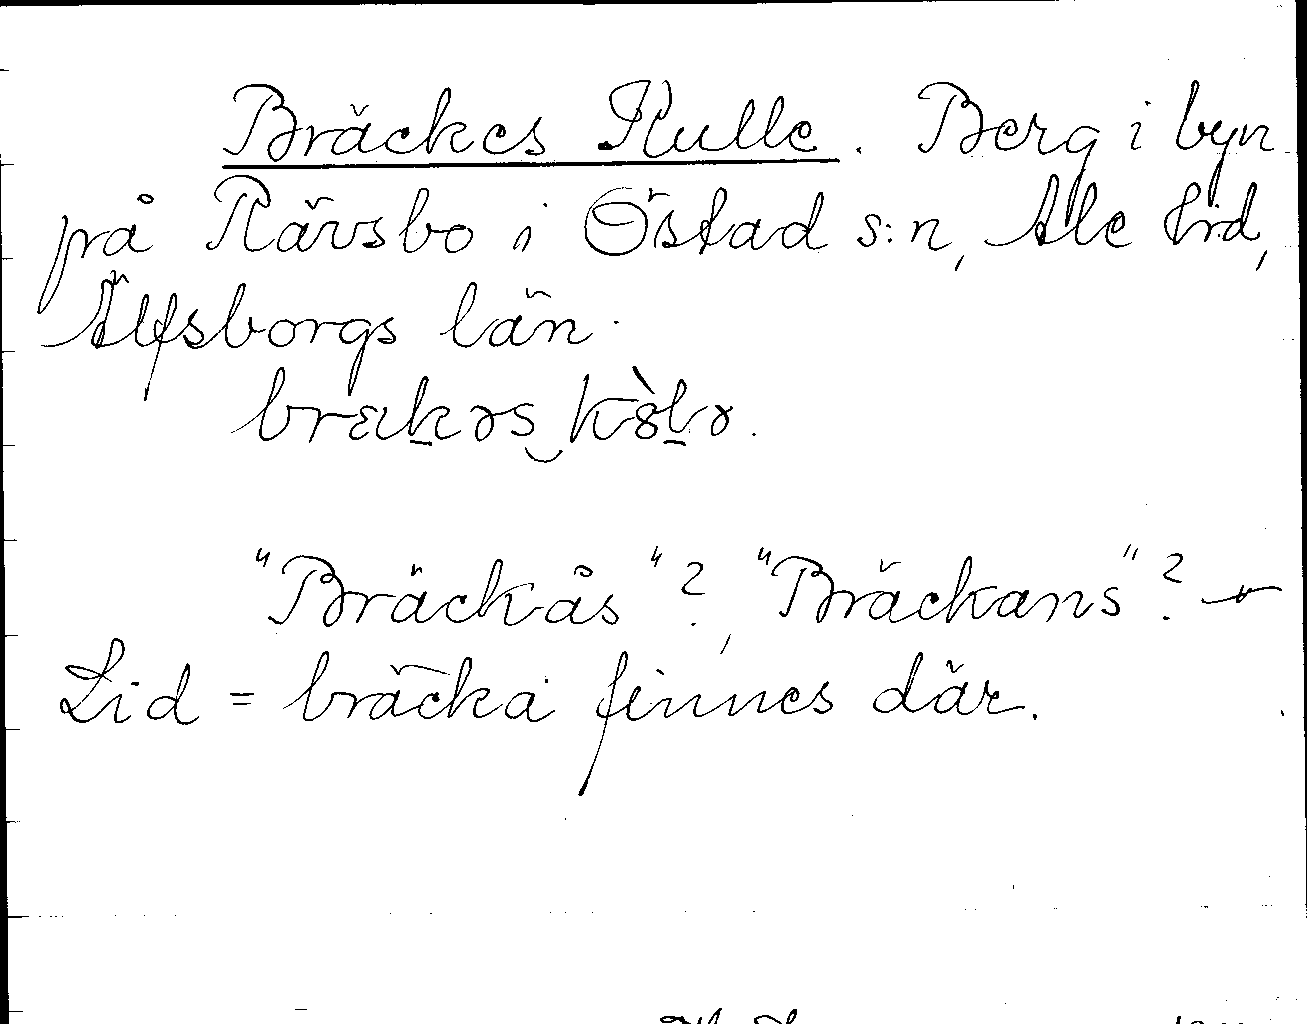 Bräckes Kulle. Berg i byn
på Rävsbo i Östad s:n, Ale hd,
Älfsborgs län.
brækəs kòlə.
"Bräckås"?, "Bräckans"? –
Lid = bräcka finnes där.